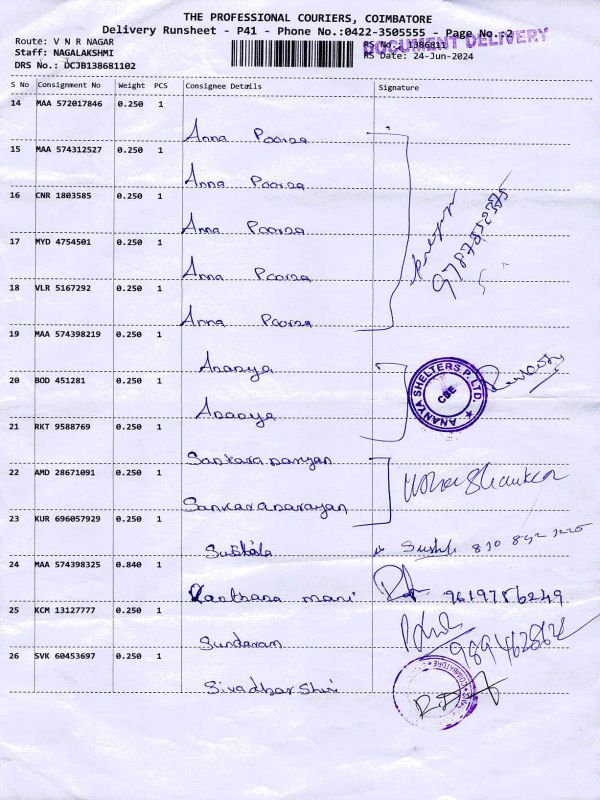 THE PROFESSIONAL COURIERS, COIMBATORE
Delivery Runsheet - P41 - Phone No.:0422-3505555 - Page No.:2
DOCUMENT DELIVERY
Route: V N R NAGAR
Staff: NAGALAKSHMI
RS No.: 1386811
DRS No.: DCJB138681102
RS Date: 24-Jun-2024
S No Consignment No Weight PCS Consignee Details Signature
14 MAA 572017846 0.250 1
Anna Poorna
15 MAA 574312527 0.250 1
Anna Poorna
16 CNR 1803585 0.250 1
Anna Poorna
17 MYD 4754501 0.250 1
Anna Poorna
18 VLR 5167292 0.250 1
Anna Poorna
19 MAA 574398219 0.250 1
Ananya
20 BOD 451281 0.250 1
Ananya
ANANYA SHELTERS P. LTD.
CBE
21 RKT 9588769 0.250 1
Sankaranarayan
22 AMD 28671091 0.250 1
Sankaranarayan
23 KUR 696057929 0.250 1
24 MAA 574398325 0.840 1
mani 9619756249
25 KCM 13127777 0.250 1
Sundaram
26 SVK 60453697 0.250 1
Sivadharshini
COIMBATORE